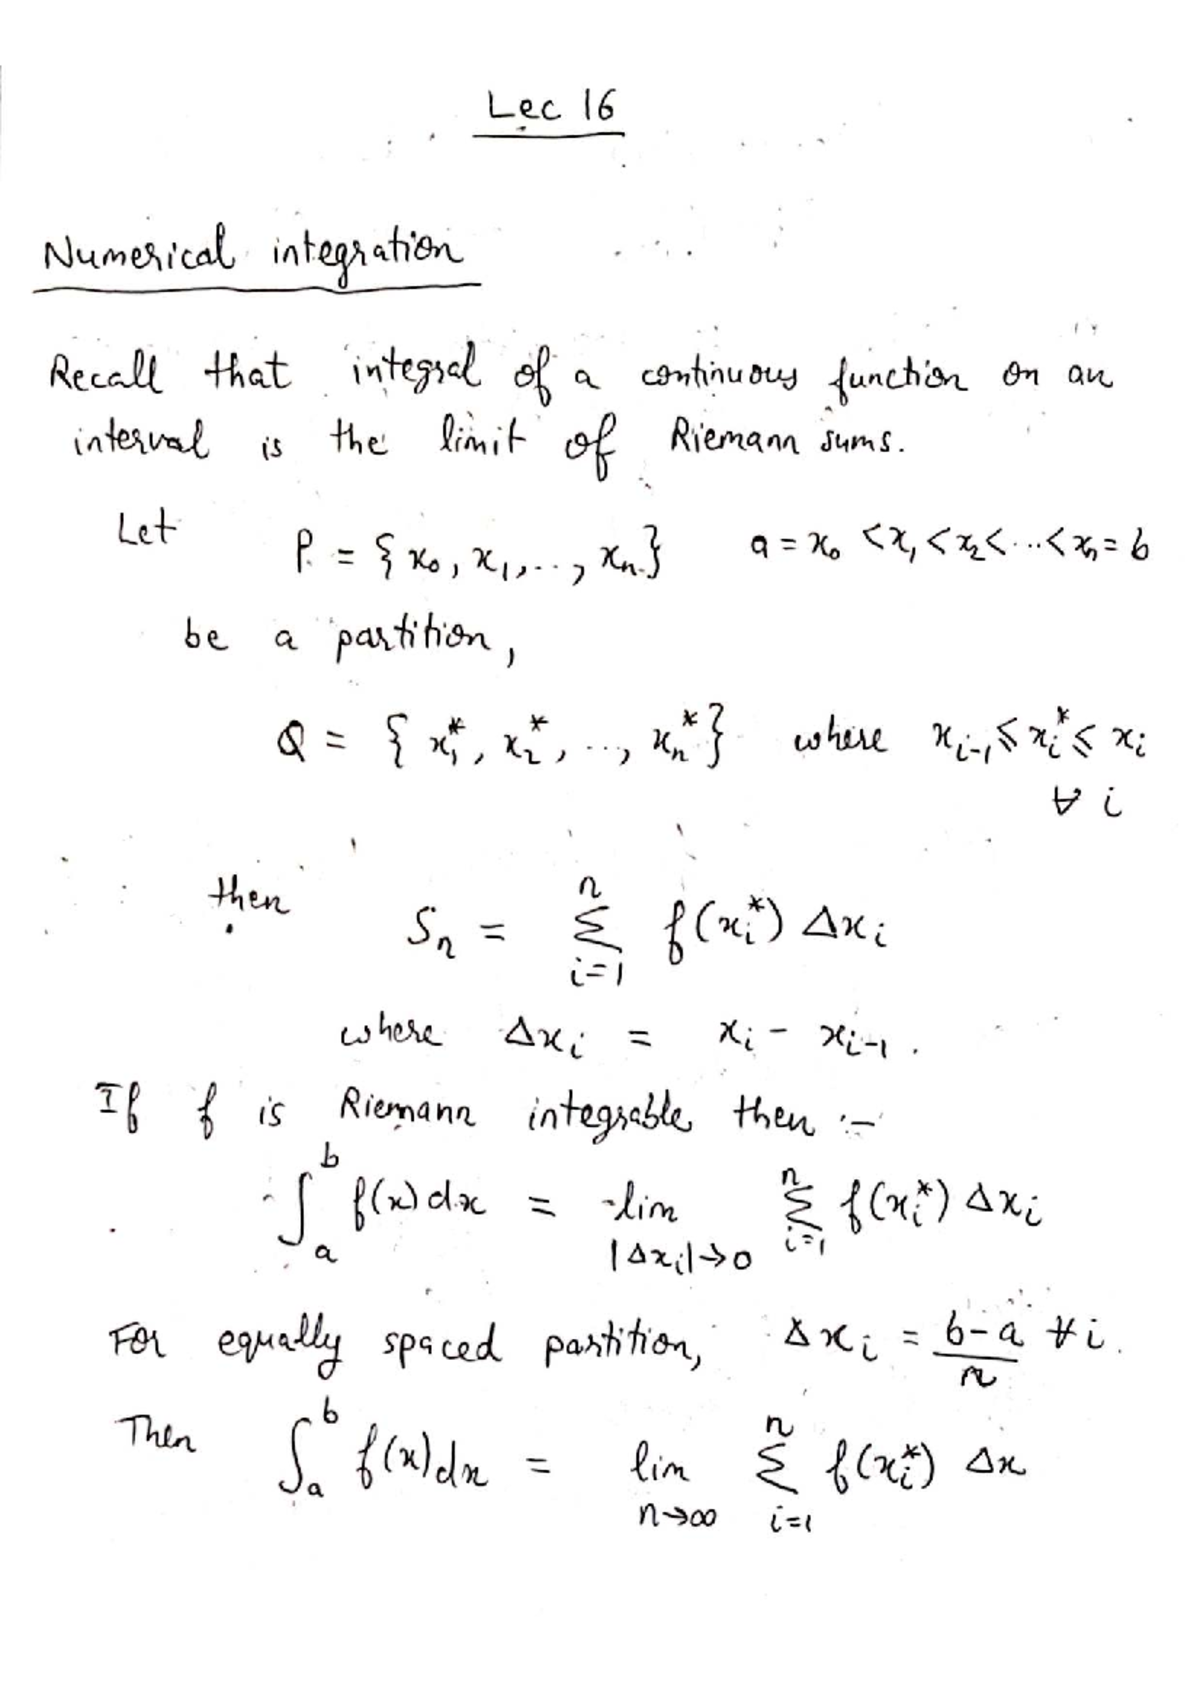 Lec 16
Numerical integration
Recall that integral of a continuous function on an
interval is the limit of Riemann sums.
Let P = {x₀, x₁, ..., xₙ} a = x₀ < x₁ < x₂ < ... < xₙ = b
be a partition,
Q = {x₁*, x₂*, ..., xₙ*} where xᵢ₋₁ ≤ xᵢ* ≤ xᵢ
∀ i
then Sₙ = Σᵢ₌₁ⁿ f(xᵢ*) Δxᵢ
where Δxᵢ = xᵢ - xᵢ₋₁.
If f is Riemann integrable then :-
∫ₐᵇ f(x) dx = lim_{|Δxᵢ|→0} Σᵢ₌₁ⁿ f(xᵢ*) Δxᵢ
For equally spaced partition, Δxᵢ = (b-a)/n ∀ i.
Then ∫ₐᵇ f(x) dx = lim_{n→∞} Σᵢ₌₁ⁿ f(xᵢ*) Δx